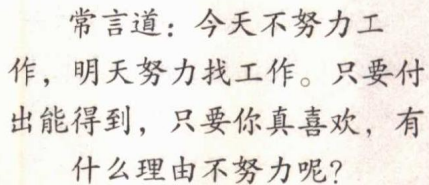 常言道：今天不努力工
作，明天努力找工作。只要付
出能得到，只要你真喜欢，有
什么理由不努力呢？